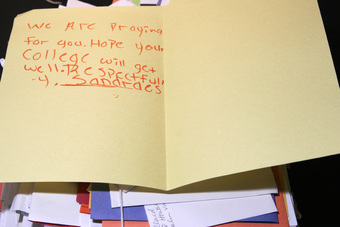 We Are Praying
For you. Hope your
College will get
well. Respectfull
-y, Sandra